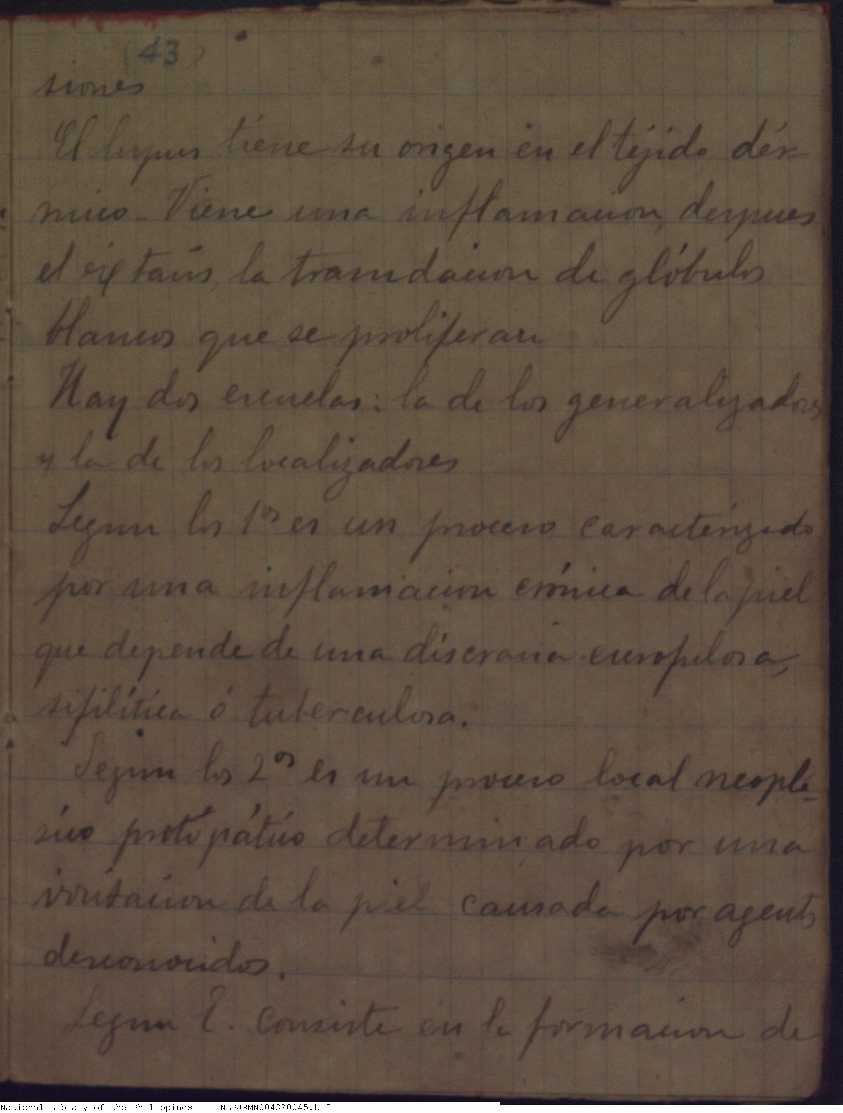 (43)
siones
El lupus tiene su origen en el téjido dér-
mico. Viene una inflamacion, despues
el éxtasis, la transudacion de glóbulos
blancos que se proliferan
Hay dos escuelas: la de los generalizadores
y la de los localizadores
Segun los 1os es un proceso caracterizado
por una inflamacion crónica de la piel
que depende de una discrasia
sifilítica ó tuberculosa.
Segun los 2os es un proceso local neoplá-
sico protopático determinado por una
irritacion de la piel causada por agents
desconocidos.
Segun E. consiste en la formacion de
National Library of the Philippines